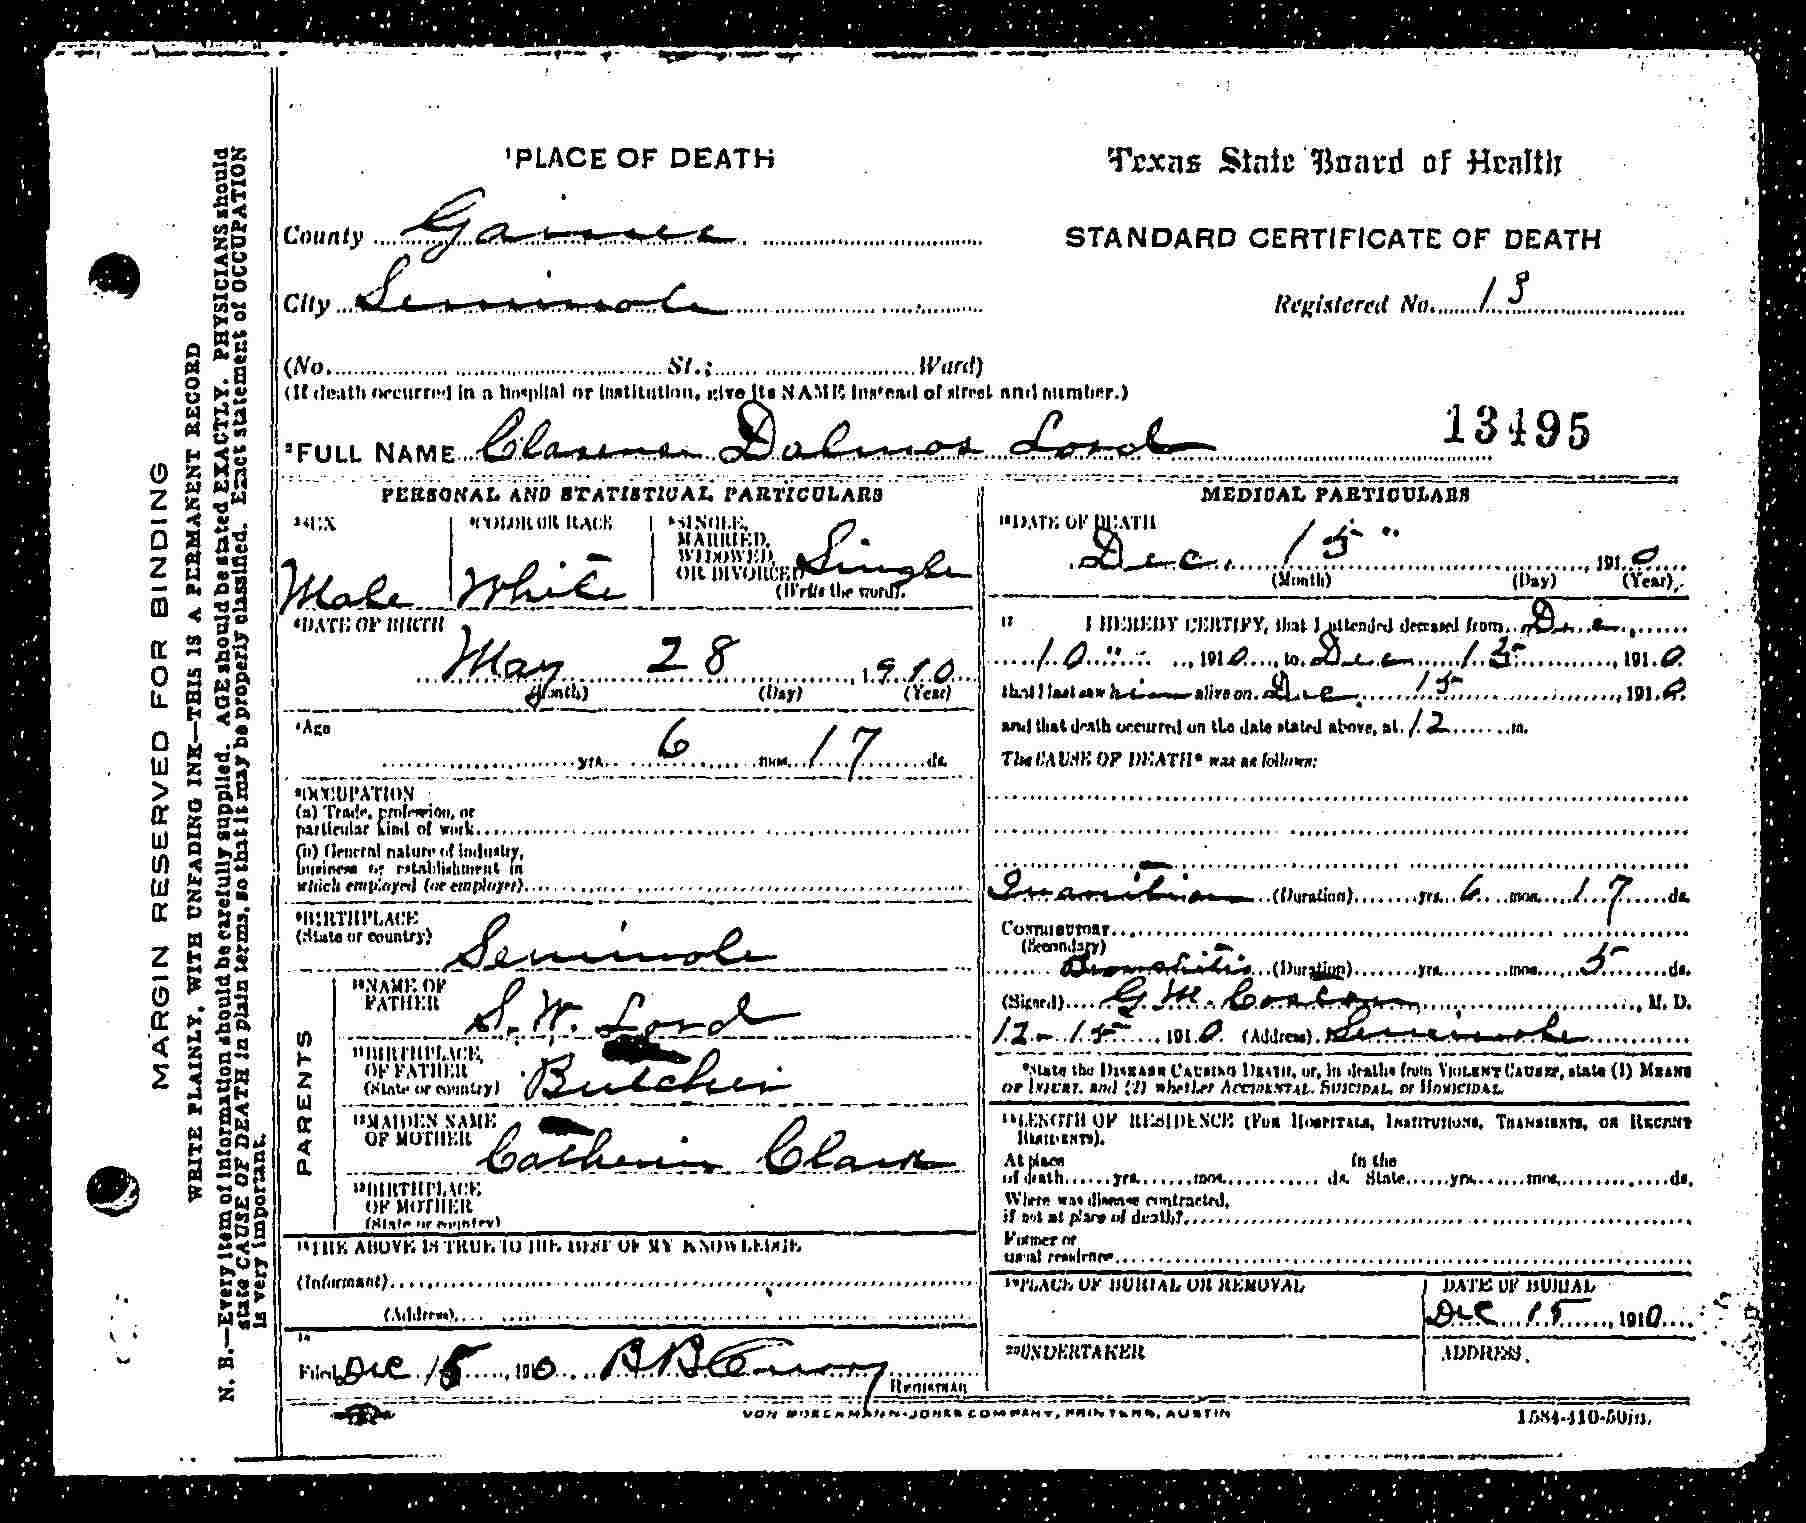 MARGIN RESERVED FOR BINDING
WRITE PLAINLY, WITH UNFADING INK—THIS IS A PERMANENT RECORD
N. B.—Every item of information should be carefully supplied. AGE should be stated EXACTLY. PHYSICIANS should
state CAUSE OF DEATH in plain terms, so that it may be properly classified. Exact statement of OCCUPATION
is very important.
1PLACE OF DEATH
Texas State Board of Health
County Gaines
STANDARD CERTIFICATE OF DEATH
City Seminole
Registered No. 13
(No. St.; Ward)
(If death occurred in a hospital or institution, give its NAME instead of street and number.)
13495
2FULL NAME Clarence Dalmos Lord
PERSONAL AND STATISTICAL PARTICULARS
3SEX
Male
4COLOR OR RACE
White
5SINGLE,
MARRIED,
WIDOWED,
OR DIVORCED Single
(Write the word).
6DATE OF BIRTH
May 28, 1910
(Month) (Day) (Year)
7Age
yrs. 6 mos. 17 ds.
8OCCUPATION
(a) Trade, profession, or
particular kind of work
(b) General nature of industry,
business or establishment in
which employed (or employer)
9BIRTHPLACE
(State or country)
Seminole
PARENTS
10NAME OF
FATHER
S. W. Lord
11BIRTHPLACE,
OF FATHER
(State or country)
Butcher
12MAIDEN NAME
OF MOTHER
Catherin Clark
13BIRTHPLACE
OF MOTHER
(State or country)
14THE ABOVE IS TRUE TO THE BEST OF MY KNOWLEDGE
(Informant)
(Address)
15
Filed Dec 15, 1910 B B
REGISTRAR
MEDICAL PARTICULARS
16DATE OF DEATH
Dec. 15", 1910
(Month) (Day) (Year)
17 I HEREBY CERTIFY, that I attended deceased from Dec
10", 1910, to Dec 15, 1910
that I last saw him alive on Dec 15, 1910
and that death occurred on the date stated above, at 12 m.
The CAUSE OF DEATH* was as follows:
Inanition (Duration) yrs. 6 mos. 17 ds.
CONTRIBUTORY
(Secondary)
Bronchitis (Duration) yrs. mos. 5 ds.
(Signed) G. M. , M. D.
12-15, 1910 (Address) Seminole
*State the DISEASE CAUSING DEATH, or, in deaths from VIOLENT CAUSES, state (1) MEANS
OF INJURY, and (2) whether ACCIDENTAL, SUICIDAL, or HOMICIDAL.
18LENGTH OF RESIDENCE (FOR HOSPITALS, INSTITUTIONS, TRANSIENTS, OR RECENT
RESIDENTS).
At place
of death yrs. mos. ds. In the State yrs. mos. ds.
Where was disease contracted,
if not at place of death?
Former or
usual residence
19PLACE OF BURIAL OR REMOVAL
DATE OF BURIAL
Dec 15, 1910
20UNDERTAKER
ADDRESS.
VON BOECKMANN-JONES COMPANY, PRINTERS, AUSTIN
1584-410-50m.